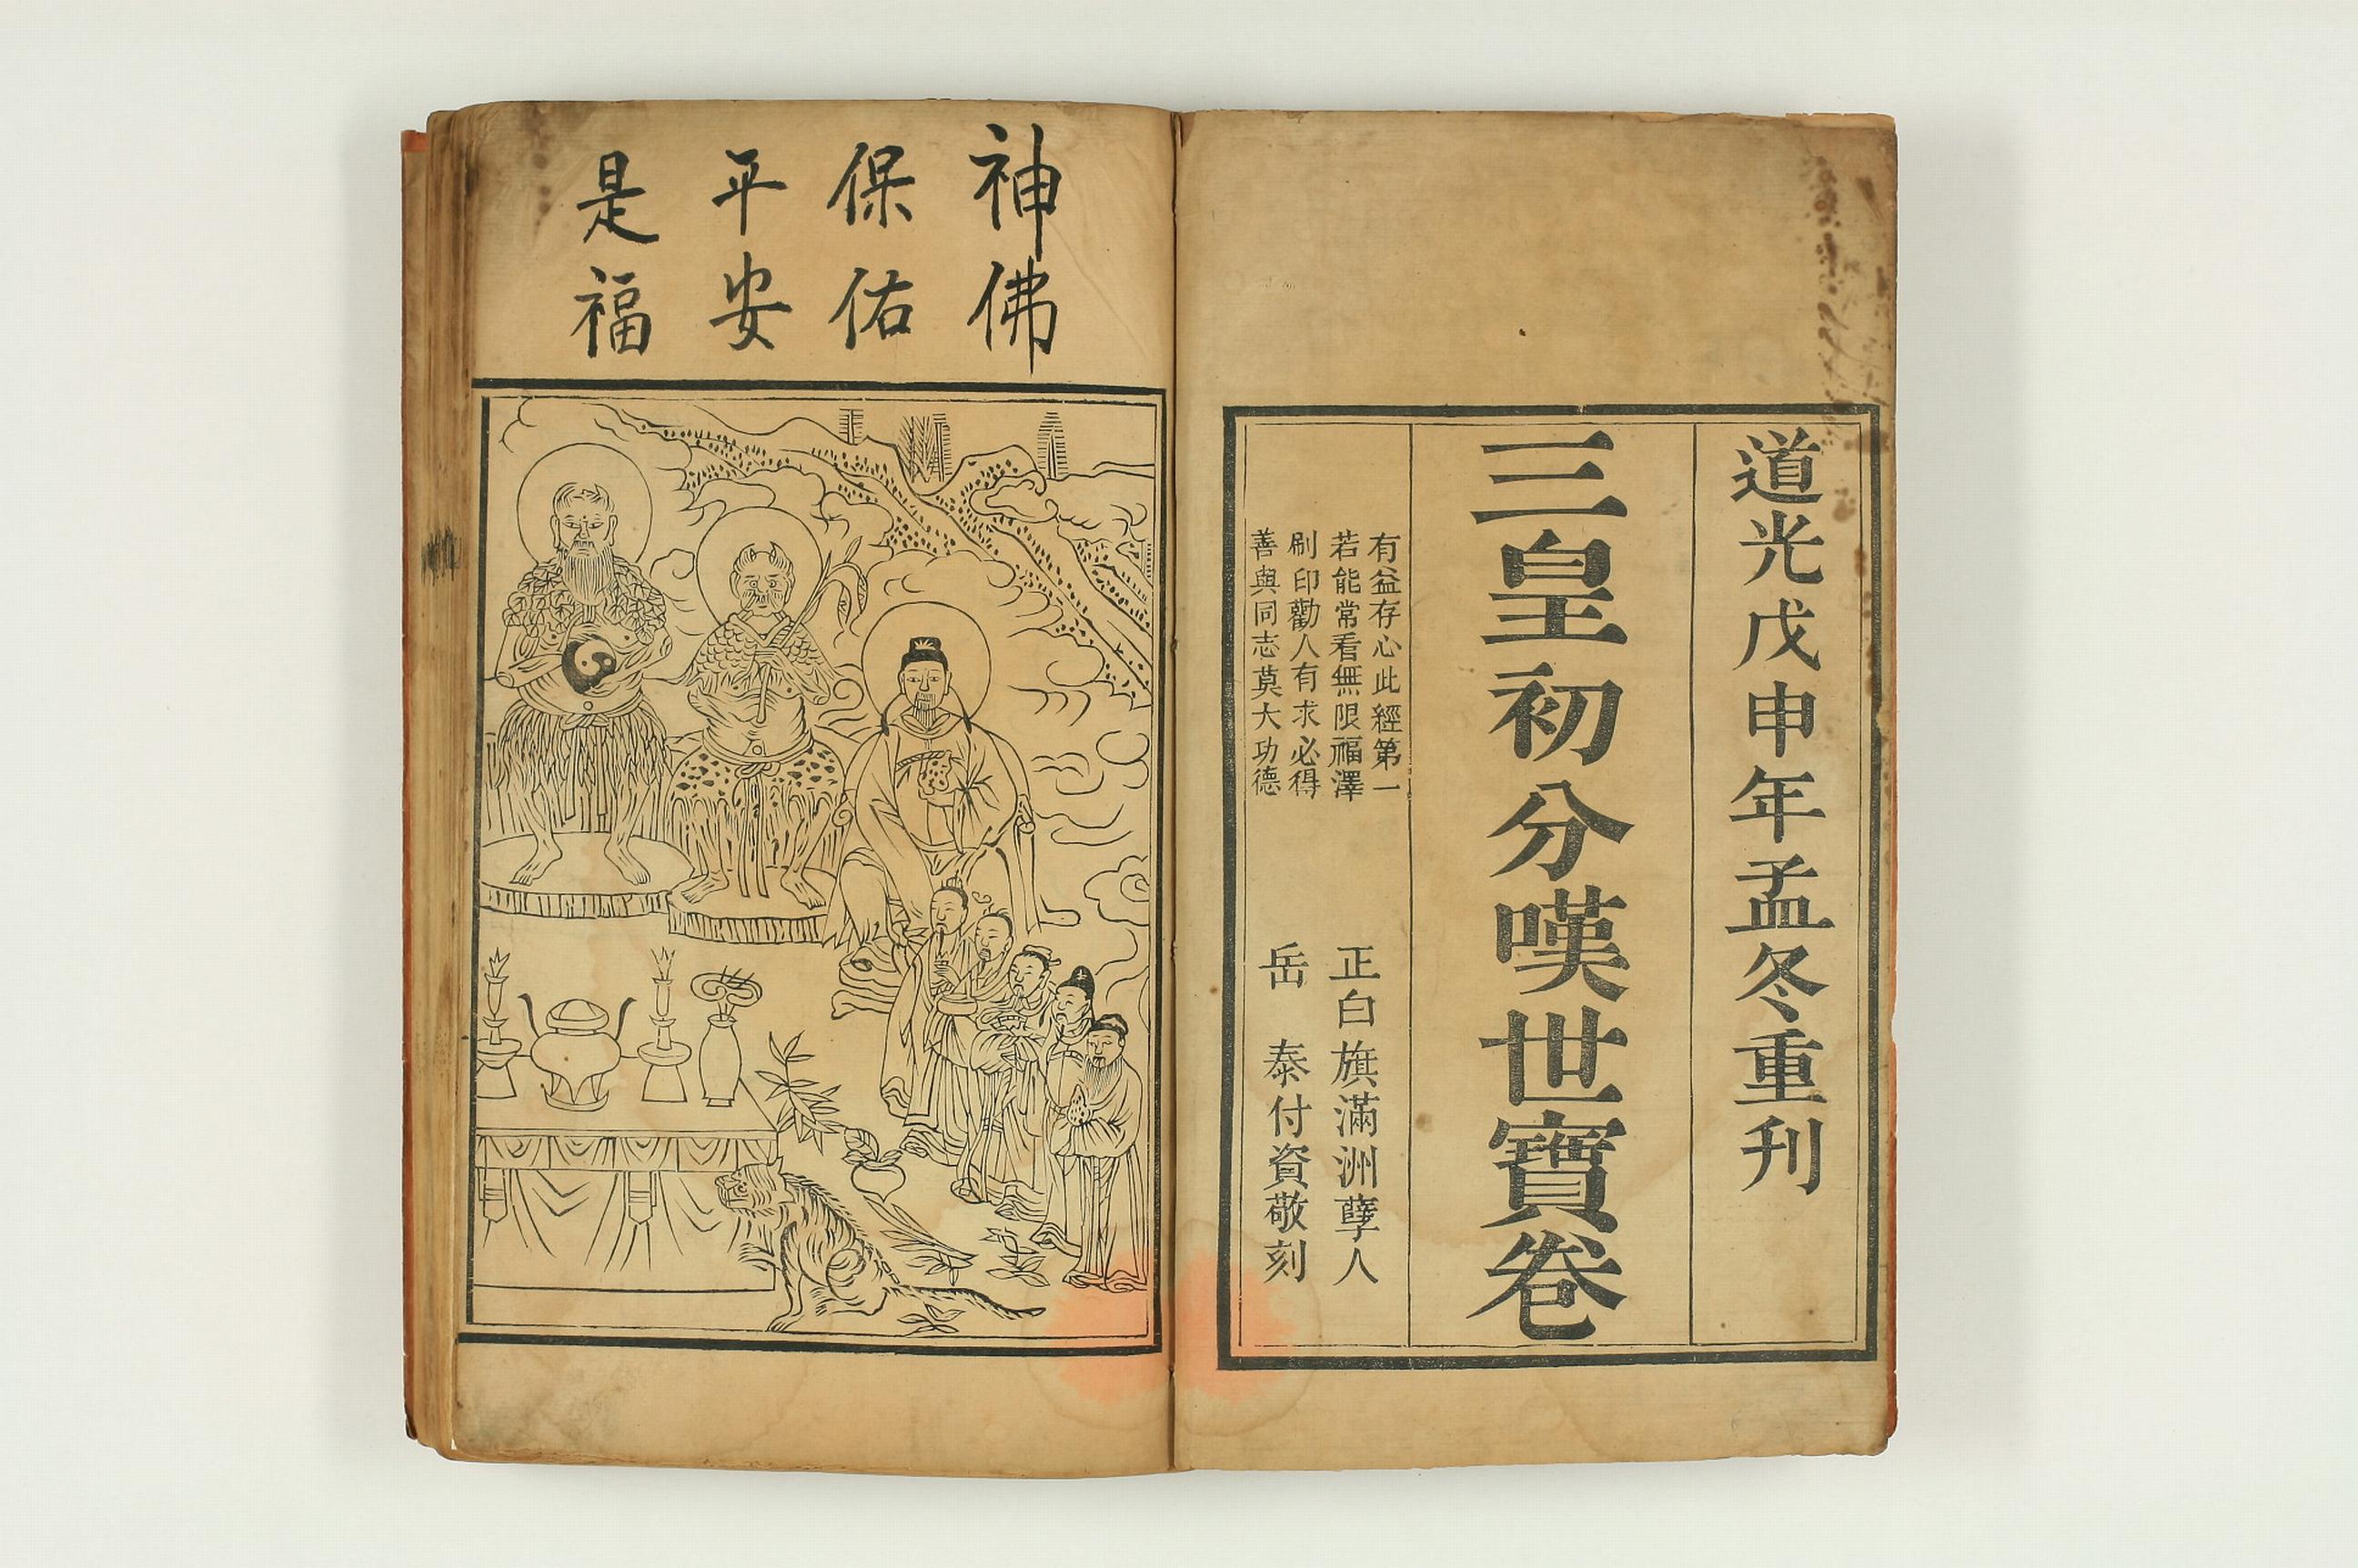 道光戊申年孟冬重刊
三皇初分嘆世寶卷
有益存心此經第一
若能常看無限福澤
刷印勸人有求必得
善與同志莫大功德
正白旗滿洲孽人
岳泰付資敬刻
神佛
保佑
平安
是福